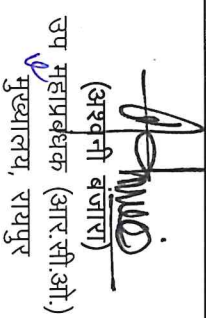 (अश्वनी बंजारा)
उप महाप्रबंधक (आर.सी.ओ.)
मुख्यालय, रायपुर